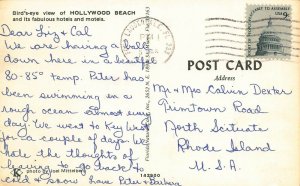 Bird's-eye view of HOLLYWOOD BEACH
and its fabulous hotels and motels.
Dear Liz & Cal
We are having a ball
down here in a beautiful
80-85° temp. Peter has
been swimming in a
rough ocean almost every
day. We went to Key West
for a couple of days. We
hate the thoughts of
leaving to go back to
cold & snow. Love Peter & Barbara
K photo by Ucal Mittelberg
142950
POST CARD
Address
Mr & Mrs Calvin Dexter
Trimtown Road
North Scituate
Rhode Island
U.S.A.
USA 9c